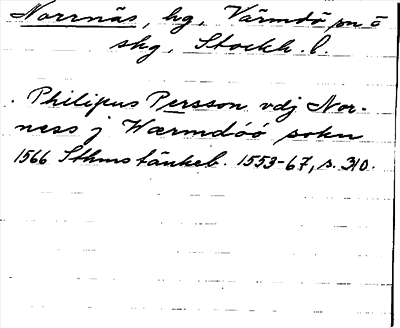 Norrnäs, hg, Värmdö sn o
skg, Stockh. l.
Philipus Persson vdj Nor-
ness j Wærmdóó sokn
1566 Sthms tänkeb. 1553-67, s. 310.